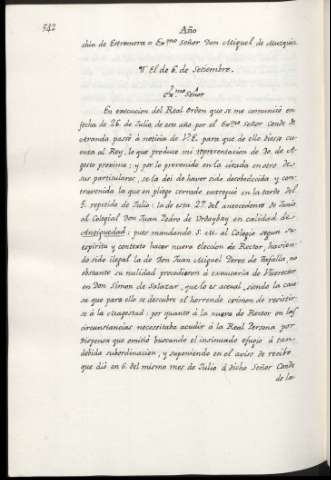 342
Año
chia de Estremera o Ex.mo Señor Don Miguel de Muzquiz.
El de 6. de Setiembre.
Ex.mo Señor
En execucion del Real Orden que se me comunicó en
fecha de 26. de Julio, de este año por el Ex.mo Señor Conde de
Aranda passé à noticia de V.E. para que de ello diesse cu-
enta al Rey, lo que produce mi representacion de 30. de A-
gosto proximo; y por lo prevenido en la citada en otro de
sus particulares, se la dei de haver sido desobedecida y con-
travenida la que en pliego cerrado entregué en la tarde del
5. repetido de Julio: la de esta 27. del antecedente de Junio
al Colegial Don Juan Pedro de Urdaybay en calidad de
Antiguedad; pues mandando S. M. al Colegio segun su
espiritu y contexto hacer nueva eleccion de Rector, havien-
do sido ilegal la de Don Juan Miguel Perez de Tafalla, no
obstante su nulidad procedieron à executarla de Vicerector
en Don Simon de Salazar, que lo es actual, siendo la cau-
sa que para ello se descubre el horrendo crimen de resistir-
se à la Magestad: por quanto à la nueva de Rector en las
circunstancias necesitaba acudir à la Real Persona por
dispensa que omitió buscando el insinuado efugio à tan
debida subordinacion, y suponiendo en el aviso de recibo
que dió en 6. del mismo mes de Julio à dicho Señor Conde
de la